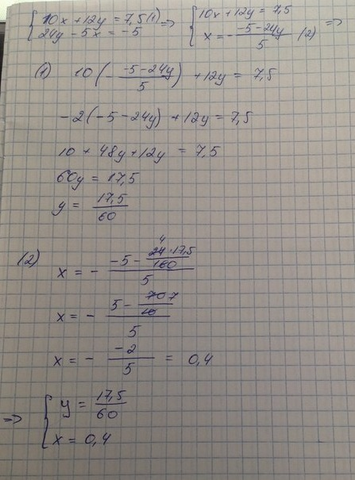 { 10x + 12y = 7,5 (1) => { 10x + 12y = 7,5 =>
{ 24y - 5x = -5 { x = - (-5 - 24y)/5 (2)
(1) 10 (- (-5 - 24y)/5) + 12y = 7,5
-2 (-5 - 24y) + 12y = 7,5
10 + 48y + 12y = 7,5
60y = 17,5
y = 17,5/60
(2) x = - (-5 - 24·17,5/60)/5
x = - (5 - 7)/5
x = - (-2)/5 = 0,4
=> { y = 17,5/60
{ x = 0,4